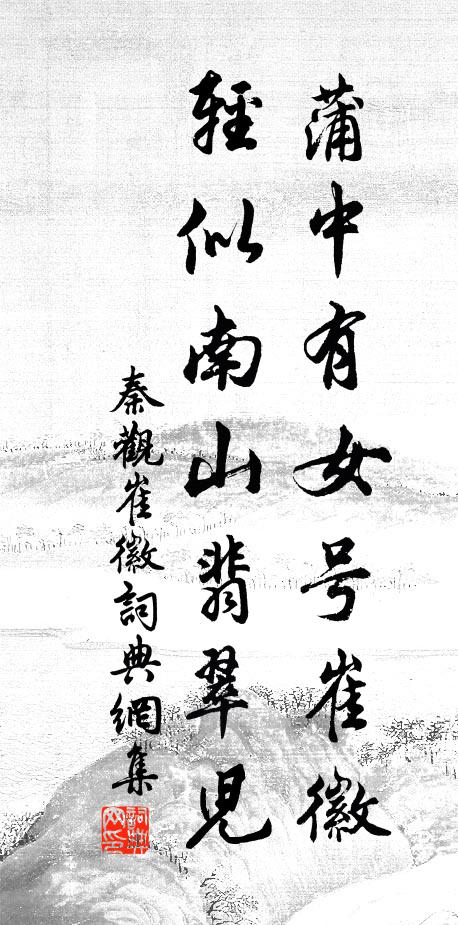 蒲中有女号崔徽
輕似南山翡翠兒
秦觀崔徽詞典網集